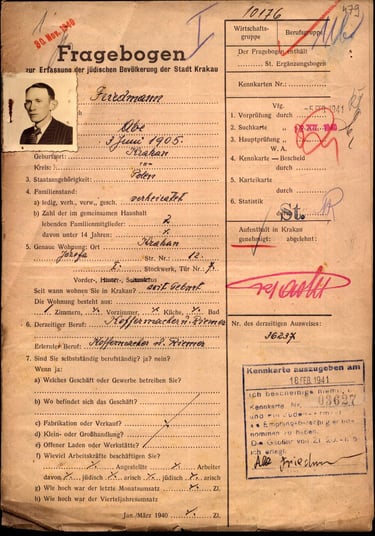 10176
479
30. Nov. 1940
I
Fragebogen
zur Erfassung der jüdischen Bevölkerung der Stadt Krakau
Wirtschafts-
gruppe
Berufsgruppe
Der Fragebogen enthält
St. Ergänzungsbogen
Kennkarten Nr.:
Vfg.
-5. FEB. 1941
1. Vorprüfung durch
2. Suchkarte „
3. Hauptprüfung „
W. A.
4. Kennkarte — Bescheid
durch
5. Karteikarte
durch
6. Statistik
St.
Aufenthalt in Krakau
genehmigt: abgelehnt:
Nr. des derzeitigen Ausweises:
16237
Kennkarte ausgegeben am
18. FEB. 1941
03627
Ich bescheinige
Kennkarte Nr.
als Empfangsberechtigter
nommen zu haben.
Die Gebühr von Zl.
ist erlegt.
Abe Friedman
Friedmann
Abe
3 Juni 1905.
Geburtsort: Krakau
Kreis: -"-
3. Staatsangehörigkeit: Polen
4. Familienstand:
a) ledig, verh., verw., gesch. verheiratet
b) Zahl der im gemeinsamen Haushalt
lebenden Familienmitglieder: 2
davon unter 14 Jahren.
5. Genaue Wohnung: Ort Krakau
Josefa Str. Nr.: 12.
I. Stockwerk, Tür Nr. 7.
Vorder-, Hinter-,
Seit wann wohnen Sie in Krakau? seit Geburt
Die Wohnung besteht aus:
1 Zimmern, x. Vorzimmer, x. Küche, x. Bad
6. Derzeitiger Beruf: Koffermacher u. Riemer
Erlernter Beruf: Koffermacher u. Riemer
7. Sind Sie selbstständig berufstätig? ja? nein?
Wenn ja:
a) Welches Geschäft oder Gewerbe betreiben Sie?
b) Wo befindet sich das Geschäft?
c) Fabrikation oder Verkauf?
d) Klein- oder Großhandlung?
e) Offener Laden oder Werkstätte?
f) Wieviel Arbeitskräfte beschäftigen Sie?
x. Angestellte x. Arbeiter
davon x. jüdisch x. arisch x. jüdisch x. arisch
g) Wie hoch war der letzte Monatsumsatz x. Zl.
h) Wie hoch war der Vierteljahresumsatz
Jan./März 1940 x. Zl.